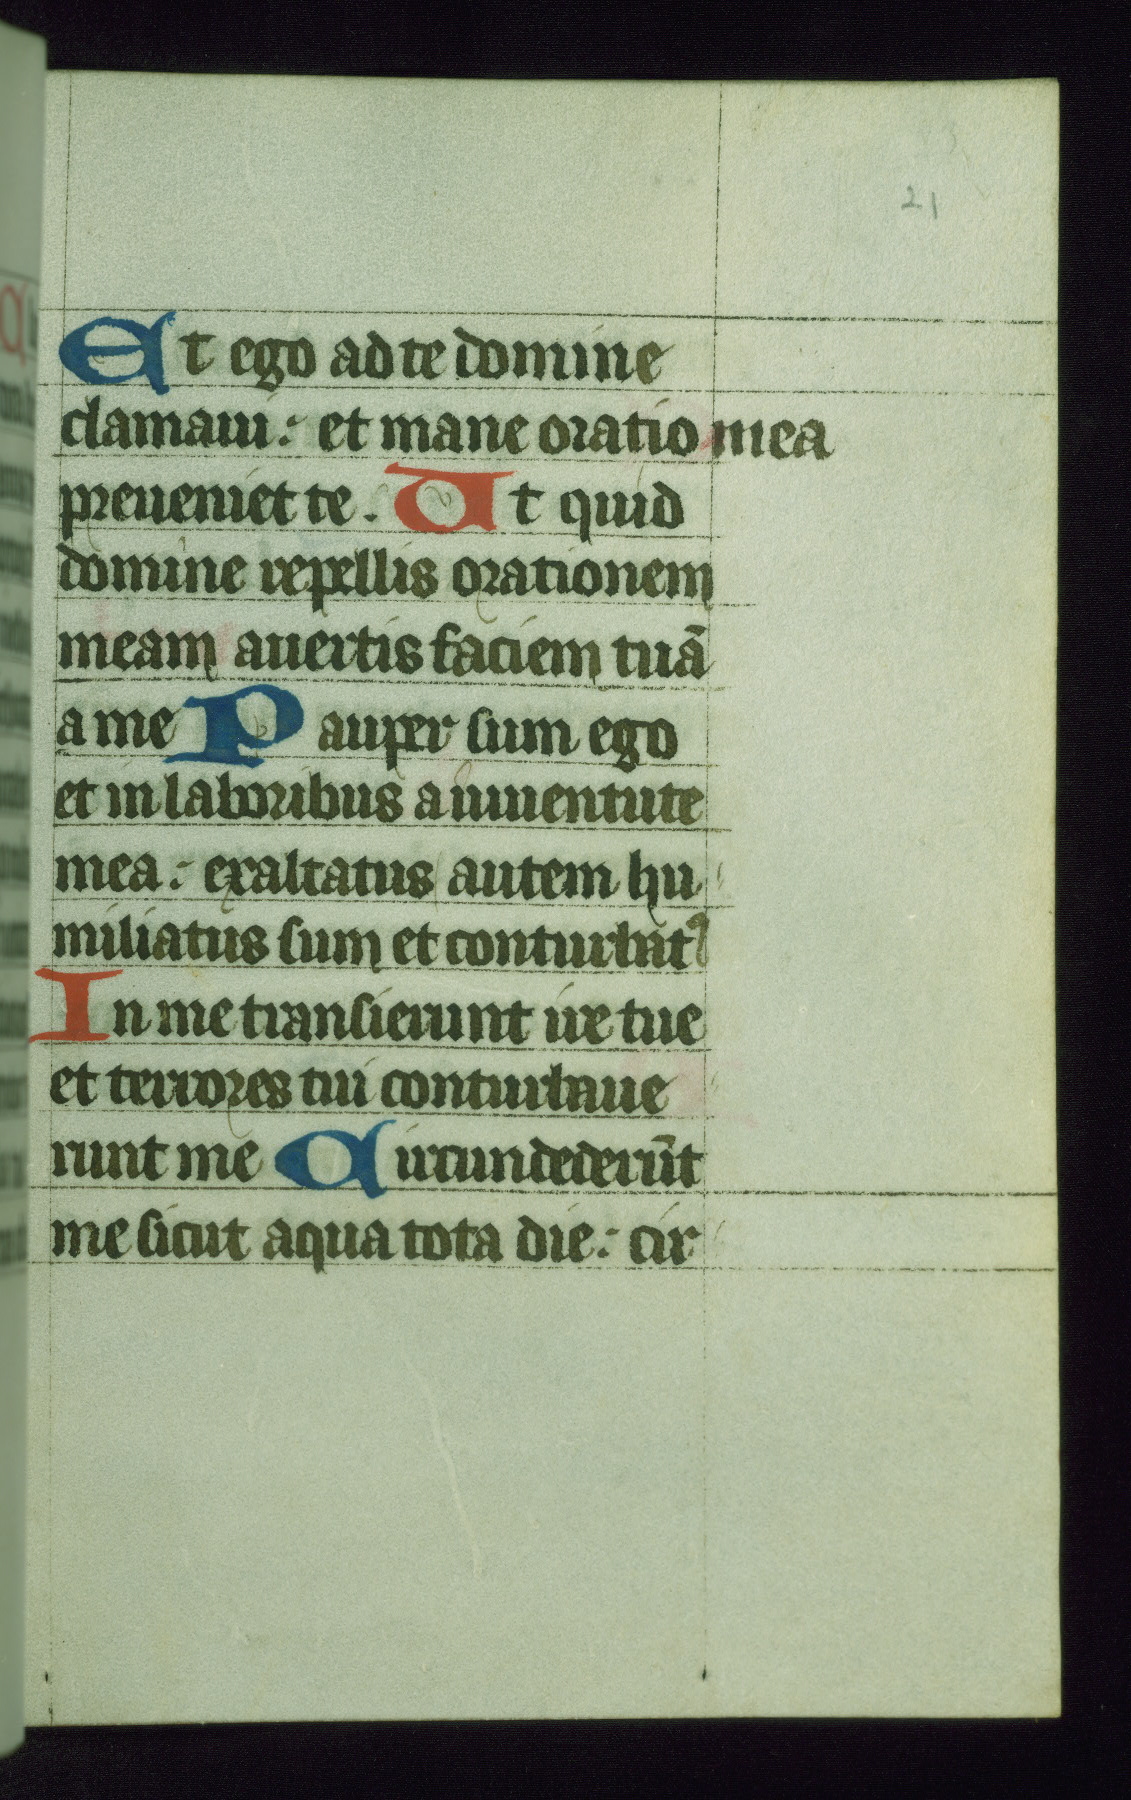 21
Et ego ad te domine
clamaui: et mane oratio mea
preueniet te. Ut quid
domine repellis orationem
meam auertis faciem tuā
a me Pauper sum ego
et in laboribus a iuuentute
mea: exaltatus autem hu
miliatus sum et conturbat᷒
In me transierunt ire tue
et terrores tui conturbaue
runt me Circundederūt
me sicut aqua tota die: cir